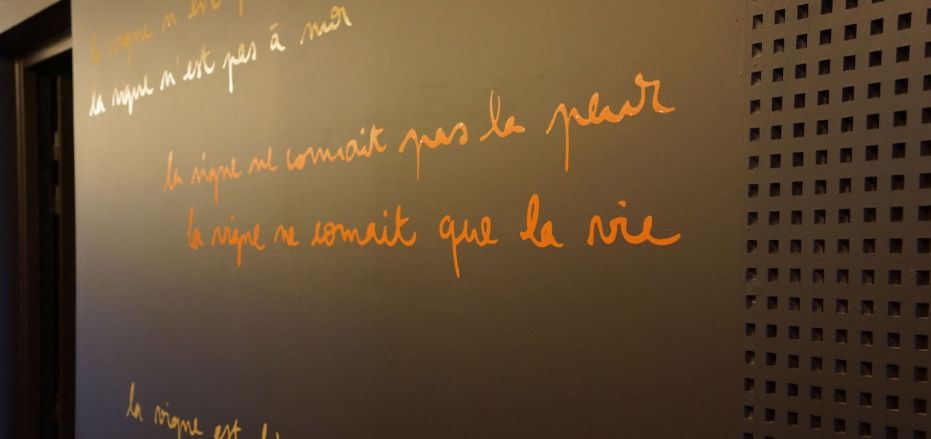 la vigne n'est p
la vigne n'est pas à moi
la vigne ne connait pas la peur
la vigne ne connait que la vie
la vigne est